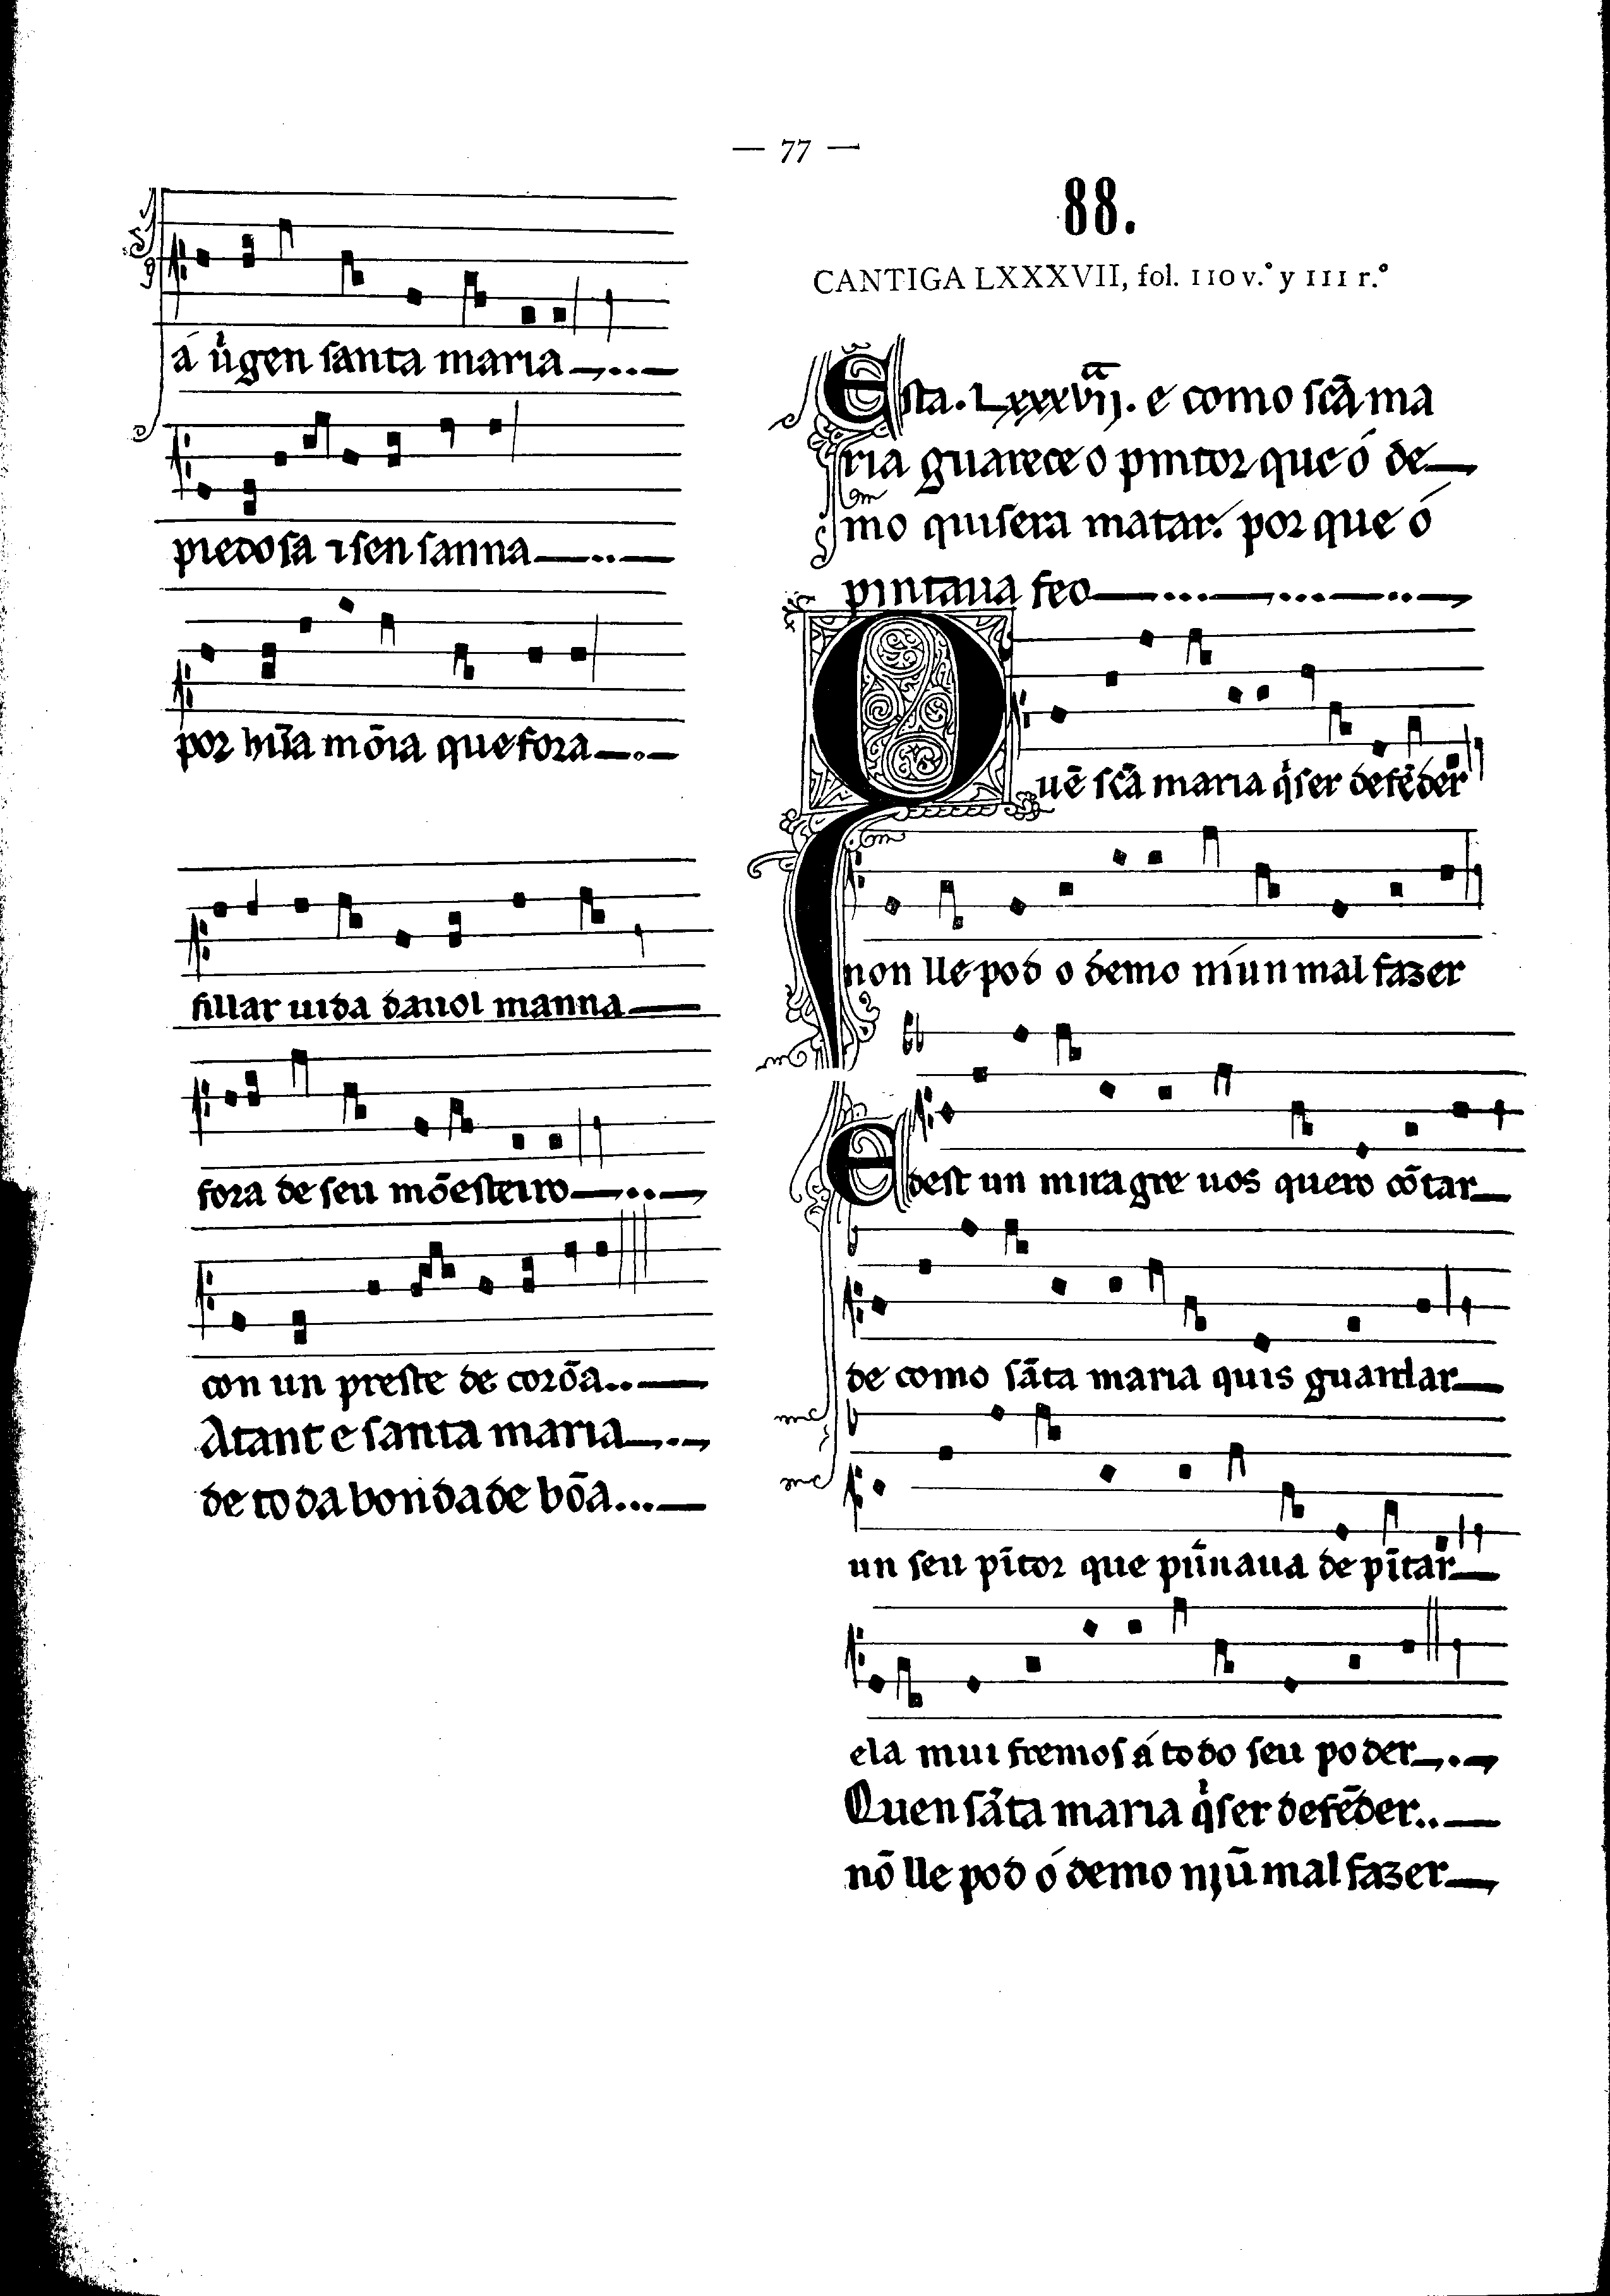 — 77 —
á uͥgen ſanta maria
piedoſa ⁊ ſen ſanna
por hũa mõia que fora
fillar uida dauol manna
fora de ſeu mõeſteiro
con un preſte de coꝛõa..
Atant e ſanta maria
de toda bondade bõa...
88.
CANTIGA LXXXVII, fol. 110 v.º y 111 r.º
Eſta. Lxxxvijª. e como ſcã ma
ria guarece o pintoꝛ que ó de
mo quiſera matar. poꝛ que ó
pintaua feo
Quẽ ſcã maria qͥſer defẽder
non lle pod o demo niun mal fazer
E deſt un miragre uos quero cõtar
de como ſãta maria quis guardar
un ſeu pĩtoꝛ que pũnaua de pĩtar
ela mui fremoſ á todo ſeu poder
Quen ſãta maria qͥſer defẽder..
nõ lle pod ó demo njũ mal fazer